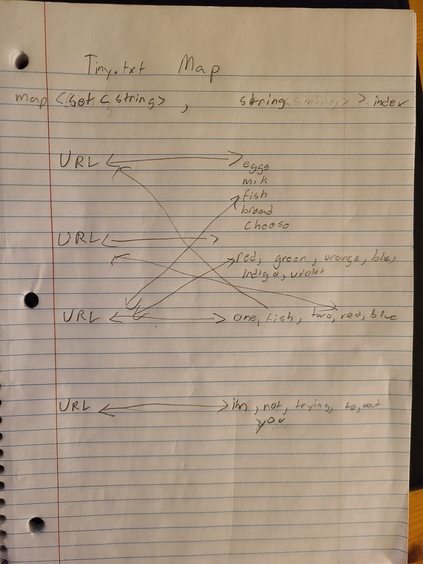 Tiny.txt Map
map <(set < string> , string > index
URL eggs
milk
fish
bread
cheese
URL
red, green, orange, blue,
indigo, violet
URL one, fish, two, red, blue
URL im, not, trying, to, eat
you